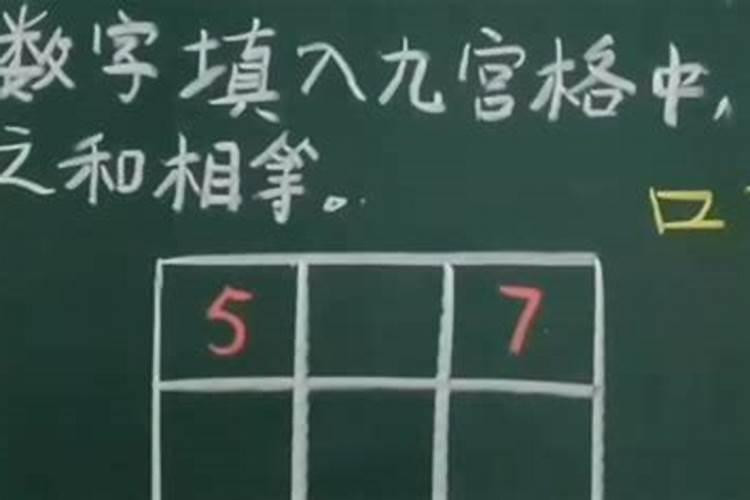 数字填入九宫格中,
之和相等。
口
5 7